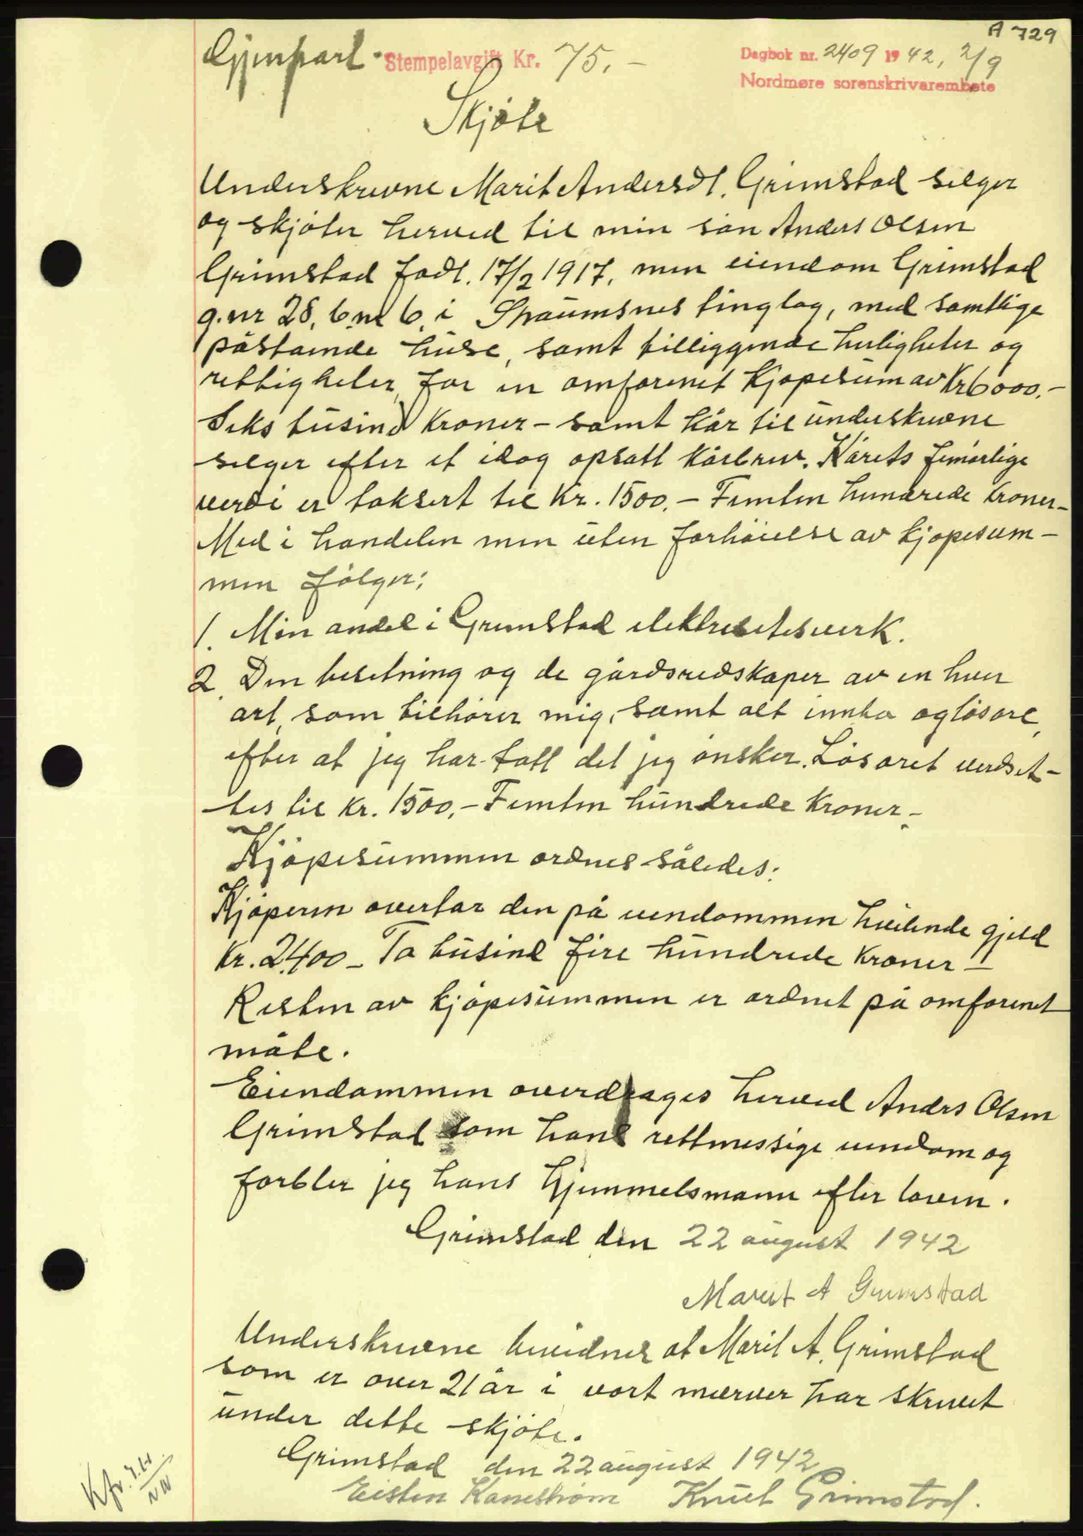 A 729
Gjenpart. Stempelavgift Kr. 75.-
Dagbok nr. 2409 1942, 2/9
Nordmøre sorenskriverembete
Skjöte
Underskrevne Marit Andersdt. Grimstad selger
og skjöter herved til min sön Anders Olsen
Grimstad födt. 17/2 1917, min eiendom Grimstad
g.nr 28, b.nr 6 i Straumsnes tinglag, med samtlige
påstående huse, samt tilliggende herligheter og
rettigheter, for en omforenet kjöpesum av Kr 6000.-
Seks tusind kroner - samt kår til underskrevne
selger efter et idag opsatt kårbrev. Kårets femårlige
verdi er taksert til Kr. 1500.- Femten hundrede kroner-
Med i handelen men uten forhöielse av kjöpesum-
men fölger:
1. Min andel i Grimstad elektrisitetsverk.
2. Den besetning og de gårdsredskaper av en hver
art, som tilhörer mig, samt alt innbo og lösöre,
efter at jeg har tatt det jeg önsker. Lösöret verdset-
tes til Kr. 1500.- Femten hundrede kroner.-
Kjöpesummen ordnes således:
Kjöperen overtar den på eiendommen hvilende gjeld
Kr. 2400 - To tusind fire hundrede kroner -
Resten av kjöpesummen er ordnet på omforenet
måte.
Eiendommen overdrages herved Anders Olsen
Grimstad som hans rettmessige eiendom og
forbler jeg hans hjemmelsmann efter loven.
Grimstad den 22 august 1942
Marit A Grimstad
Underskrevne bevidner at Marit A. Grimstad
som er over 21 år i vort nærver har skrevet
under dette skjöte.
Grimstad den 22 august 1942
Eisten Kanestrøm Knut Grimstad.
Kfr.